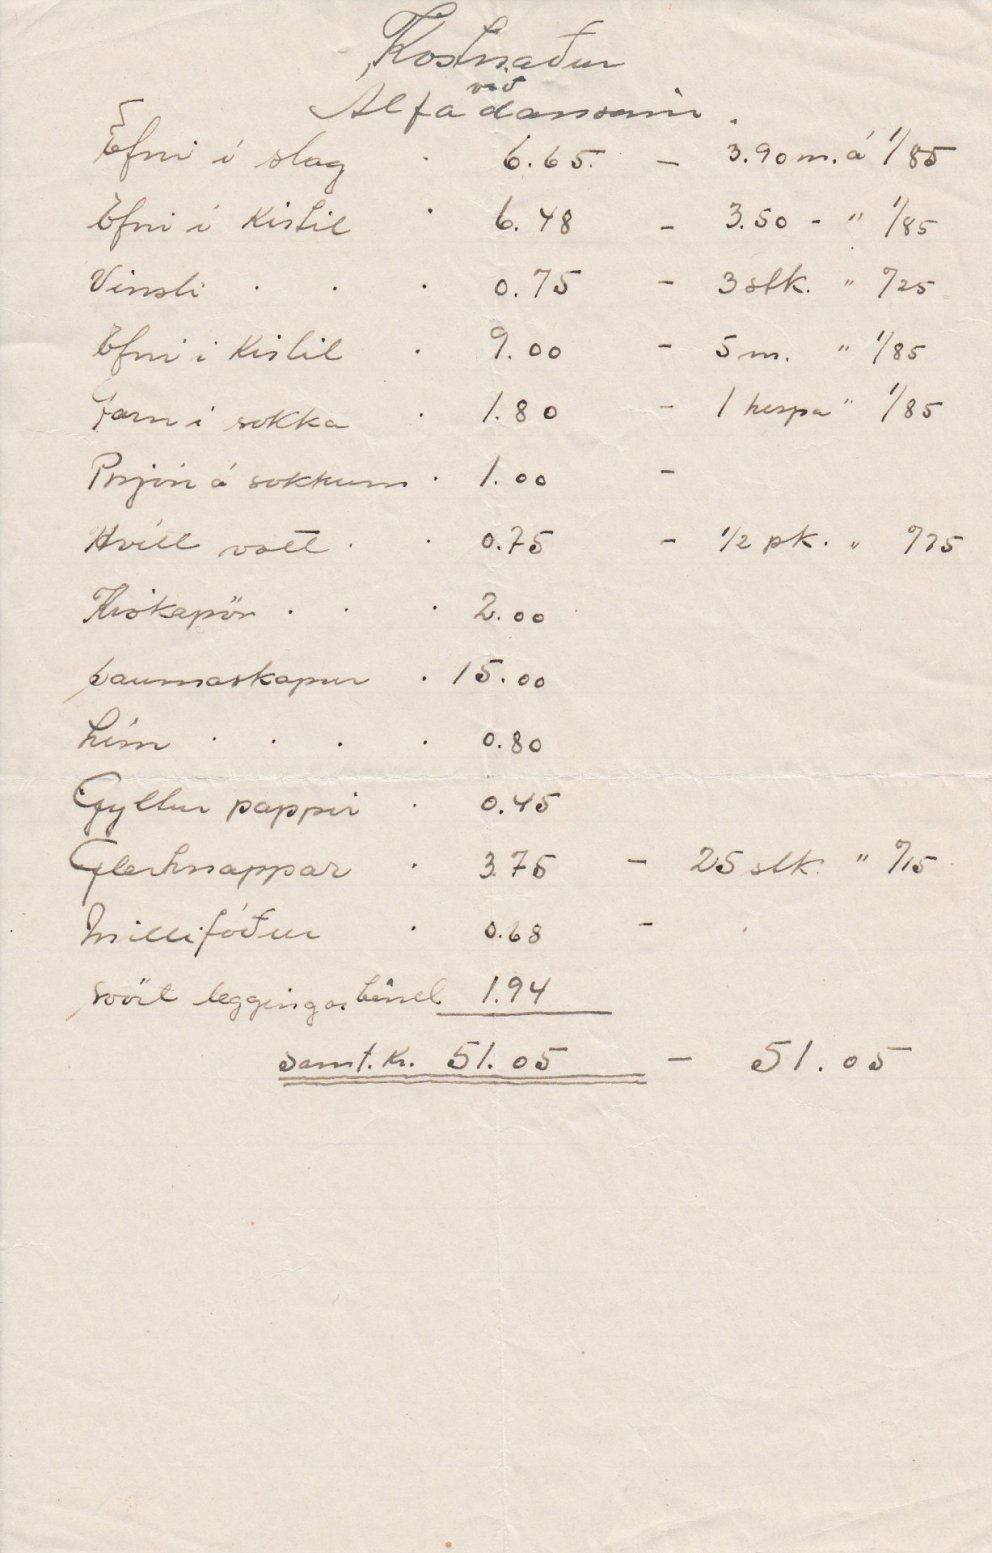 Kostnaður
við
Alfadansinn.
Efni í slag . 6.65. – 3.90 m. á 1/85
Efni í Kistil . 6.48 – 3.50 - " 1/85
Vinsli . . . 0.75 – 3 stk. " "/25
Efni i Kistil . 9.00 – 5 m. " 1/85
Garn i sokka . 1.80 – 1 hespa " 1/85
Prjón á sokkum . 1.00 –
Hvítt vatt . . 0.75 – 1/2 pk. "
. . 2.00
saumaskapur . 15.00
Lím . . . . 0.80
Gyllur pappir . 0.45
Glerhnappar . 3.75 – 25 stk. " "/15
Millifóður . 0.68 –
svört leggingar 1.94
Samt. Kr. 51.05 – 51.05